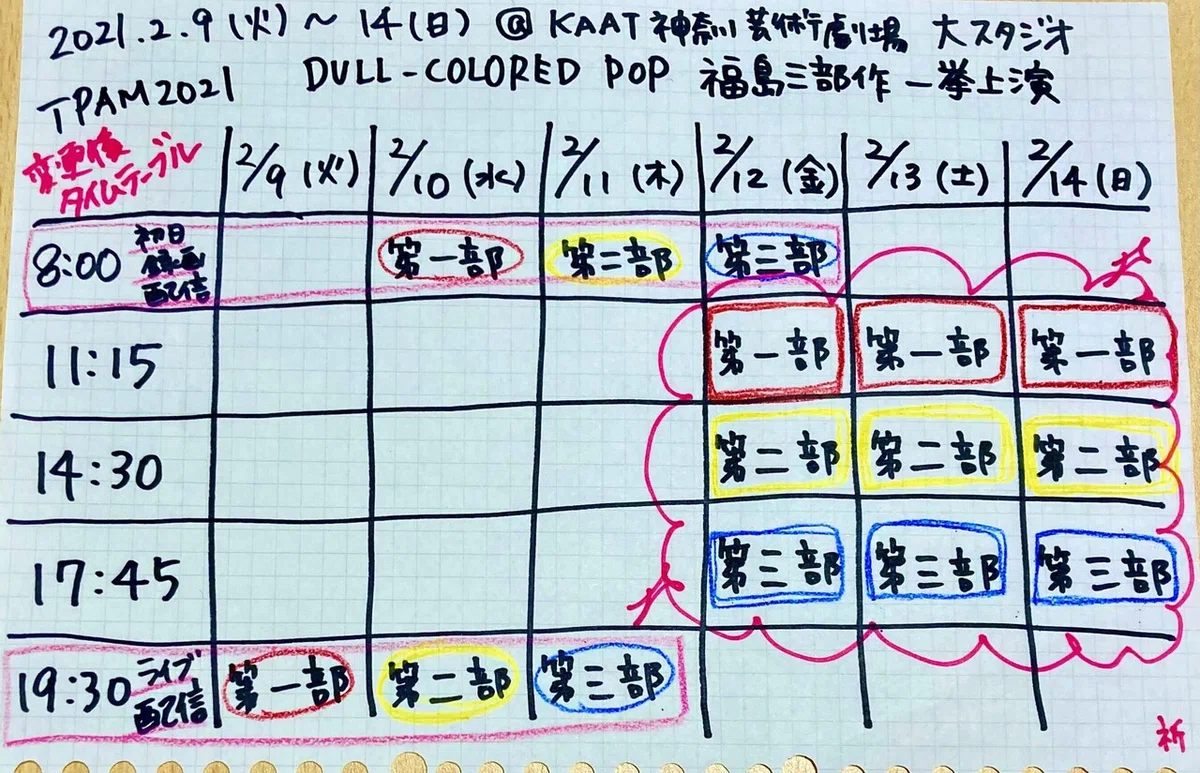 2021.2.9(火)~14(日) @KAAT神奈川芸術劇場 大スタジオ
TPAM2021 DULL-COLORED POP 福島三部作 一挙上演
変更後
タイムテーブル
2/9(火) 2/10(水) 2/11(木) 2/12(金) 2/13(土) 2/14(日)
8:00 初日録画配信 第一部 第二部 第三部
11:15 第一部 第一部 第一部
14:30 第二部 第二部 第二部
17:45 第三部 第三部 第三部
19:30 ライブ配信 第一部 第二部 第三部